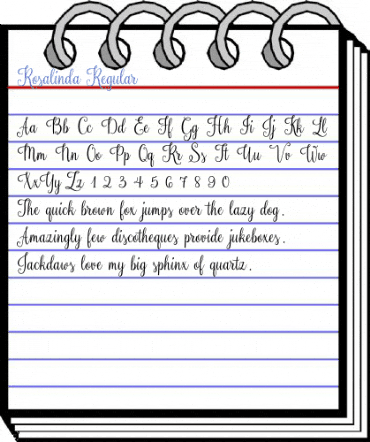 Rosalinda Regular
Aa Bb Cc Dd Ee Ff Gg Hh Ii Jj Kk Ll
Mm Nn Oo Pp Qq Rr Ss Tt Uu Vv Ww
XxYy Zz 1 2 3 4 5 6 7 8 9 0
The quick brown fox jumps over the lazy dog.
Amazingly few discotheques provide jukeboxes.
Jackdaws love my big sphinx of quartz.